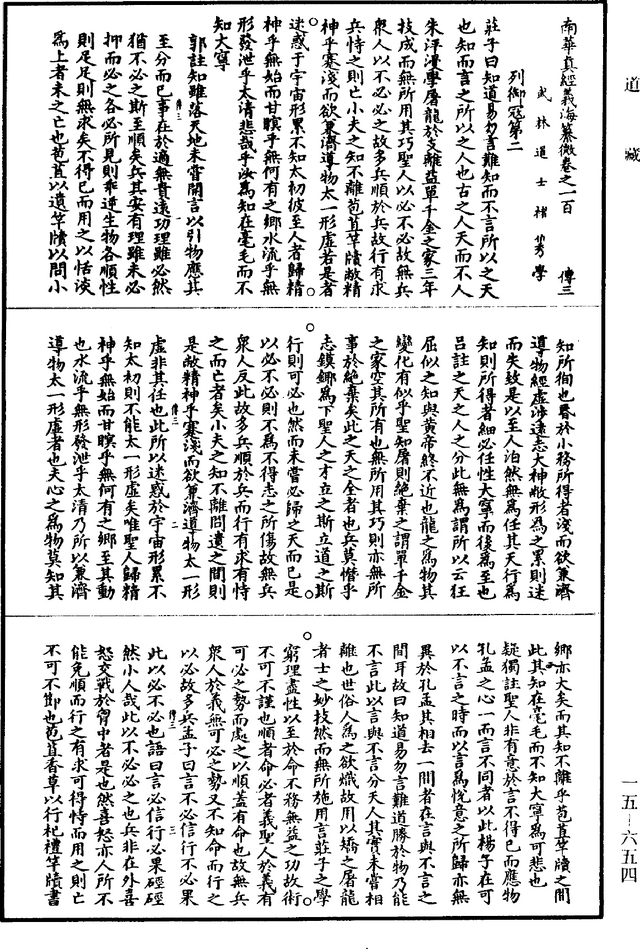 道藏
南華真經義海纂微卷之一百 傳三
武林道士褚伯秀學
列御寇第二
莊子曰知道易勿言難知而不言所以之天
也知而言之所以之人也古之人天而不人
朱泙漫學屠龍於支離益單千金之家三年
技成而無所用其巧聖人以必不必故無兵
衆人以不必必之故多兵順於兵故行有求
兵恃之則亡小夫之知不離苞苴竿牘敝精
神乎蹇淺而欲兼濟導物太一形虛若是者
迷惑于宇宙形累不知太初彼至人者歸精
神乎無始而甘瞑乎無何有之鄉水流乎無
形發泄乎太清悲哉乎汝為知在毫毛而不
知大寧
郭註知雖落天地未嘗開言以引物應其
至分而已事在於適無貴遠功理雖必然
猶不必之斯至順矣兵其安有理雖未必
抑而必之各必所見則乖逆生物各順性
則足足則無求矣不得已而用之以恬淡
為上者未之亡也苞苴以遺竿牘以問小
知所徇也昬於小務所得者淺而欲兼濟
導物經虛涉遠志大神敝形為之累則迷
而失致是以至人泊然無為任其天行為
知則所得者細必任性大寧而後為至也
呂註之天之人之分此無為謂所以云狂
屈似之知與黃帝終不近也龍之為物其
變化有似乎聖知屠則絕棄之謂單千金
之家空其所有也無所用其巧則亦無所
事於絕棄矣此之天之全者也兵莫憯乎
志鏌鎁為下聖人之才立之斯立道之斯
行則可必也然而未嘗必歸之天而已是
以必不必則不為不得志之所傷故無兵
衆人反此故多兵順於兵而行有求有恃
之而亡者矣小夫之知不離問遺之間則
是敝精神乎蹇淺而欲兼濟導物太一形
虛非其任也此所以迷惑於宇宙形累不
知太初則不能太一形虛矣唯聖人歸精
神乎無始而甘瞑乎無何有之鄉至其動
也水流乎無形發泄乎太清乃所以兼濟
導物太一形虛者也夫心之為物莫知其
鄉亦大矣而其知不離乎苞苴竿牘之間
此其知在毫毛而不知大寧為可悲也
疑獨註聖人非有意於言不得已而應物
孔孟之心一而言不同者以此楊子在可
以不言之時而以言為悅意之所歸亦無
異於孔孟其相去一間者在言與不言之
間耳故曰知道易勿言難道勝於物乃能
不言此以言與不言分天人其實未嘗相
離也世俗人為之欲熾故用以矯之屠龍
者士之妙技然而無所施用言莊子之學
窮理盡性以至於命不務無益之功故術
不可不謹也順者命必者義聖人於義有
可必之勢而處之以順蓋有命也故無兵
衆人於義無可必之勢又不知命而行之
以必故多兵孟子曰言不必信行不必果
此以必不必也語曰言必信行必果硜硜
然小人哉此以不必必之也兵非在外喜
怒交戰於胷中者是也然喜怒亦人所不
能免順而行之有求可得恃而用之則亡
不可不卹也苞苴香草以行祀禮竿牘書
一五－六五四